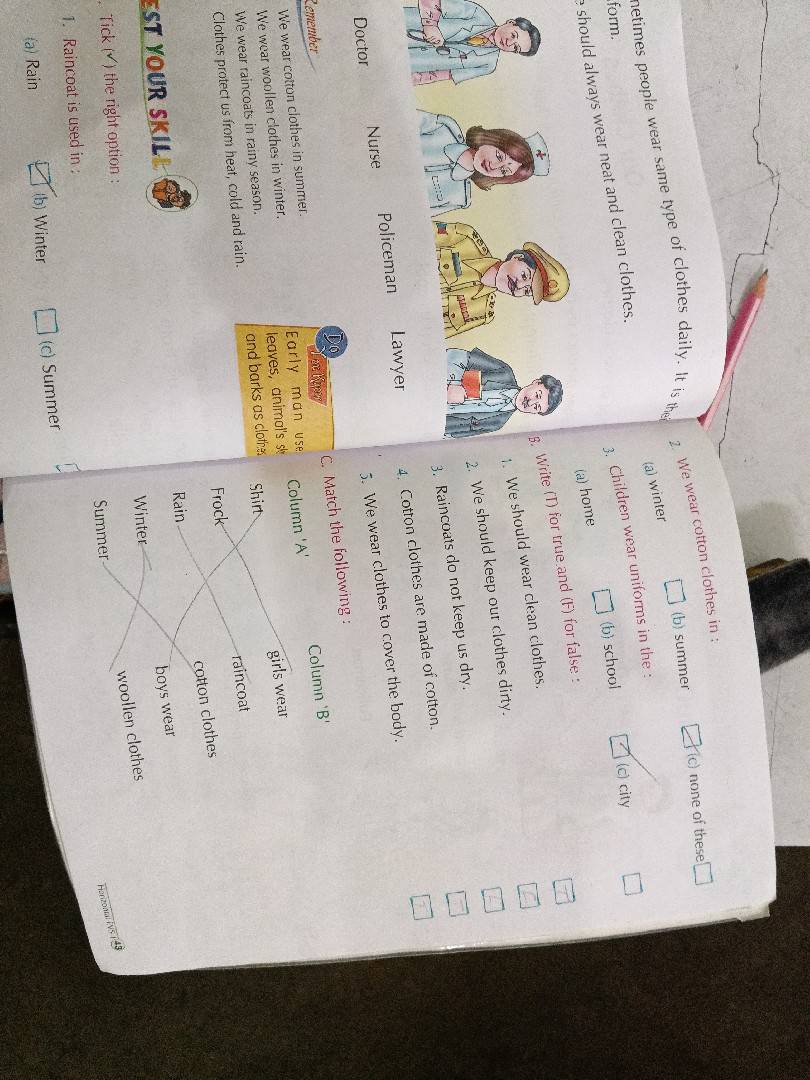 netimes people wear same type of clothes daily. It is
form.
should always wear neat and clean clothes.
Doctor Nurse Policeman Lawyer
Remember
We wear cotton clothes in summer.
We wear woollen clothes in winter.
We wear raincoats in rainy season.
Clothes protect us from heat, cold and rain.
Do You Know
Early man use
leaves, animal's
and barks as
EST YOUR SKILL
Tick (✓) the right option :
1. Raincoat is used in :
(a) Rain (b) Winter (c) Summer
2. We wear cotton clothes in :
(a) winter (b) summer (c) none of these
3. Children wear uniforms in the :
(a) home (b) school (c) city
B. Write (T) for true and (F) for false :
1. We should wear clean clothes.
2. We should keep our clothes dirty.
3. Raincoats do not keep us dry.
4. Cotton clothes are made of cotton.
5. We wear clothes to cover the body.
C. Match the following :
Column 'A' Column 'B'
Shirt girls wear
Frock raincoat
Rain cotton clothes
Winter boys wear
Summer woollen clothes
43